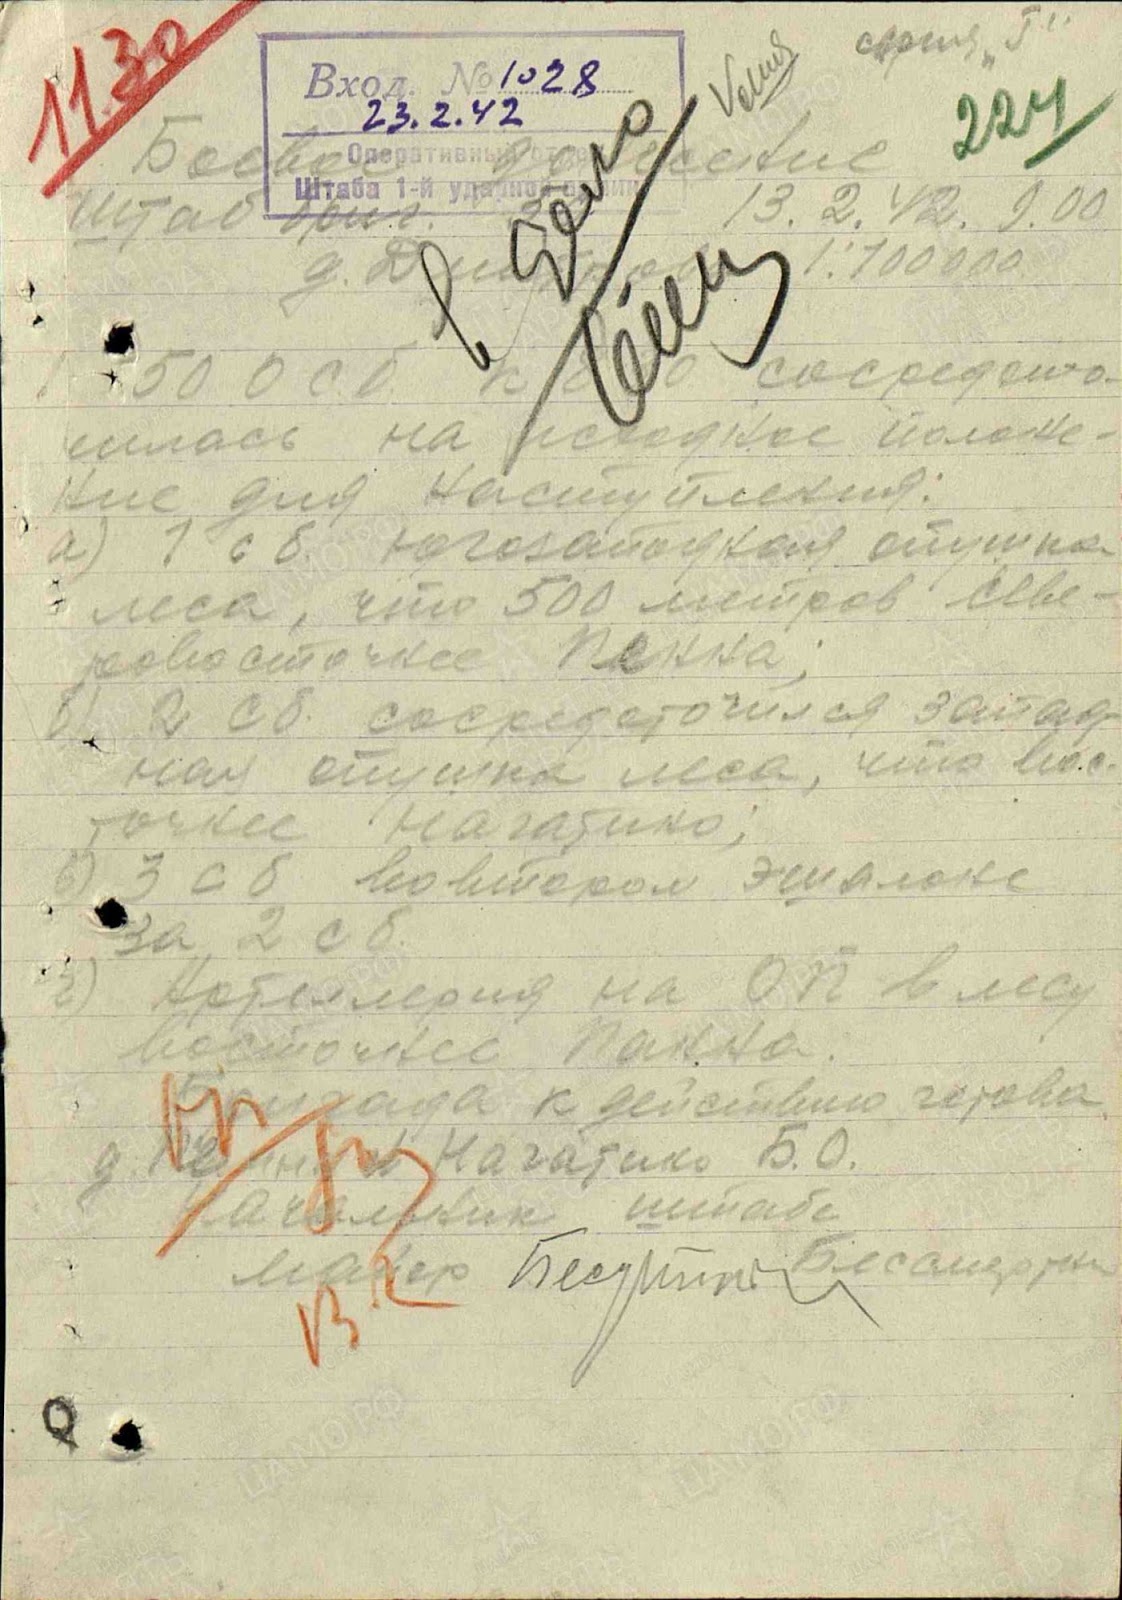 11.30
серия „Г"
224
Вход. № 1028
23.2.42
Оперативный отдел
Штаба 1-й ударной армии
Боевое донесение
Штаб бриг. 13.2.42. 9.00
д. 1:100000
В дело
1. 50 О С б. к 8.00 сосредото-
чилась на исходное положе-
ние для наступления:
а) 1 с б. югозападная опушка
леса, что 500 метров севе-
ровосточнее Пенна;
б) 2 с б. сосредоточился запад-
ная опушка леса, что вос-
точнее Нагаткино;
в) 3 с б во втором эшалоне
за 2 с б.
г) Артиллерия на ОП в лесу
восточнее Пенна.
Бригада к действию готова
д. Нагаткино Б.О.
Начальник штаба
майор
13.2